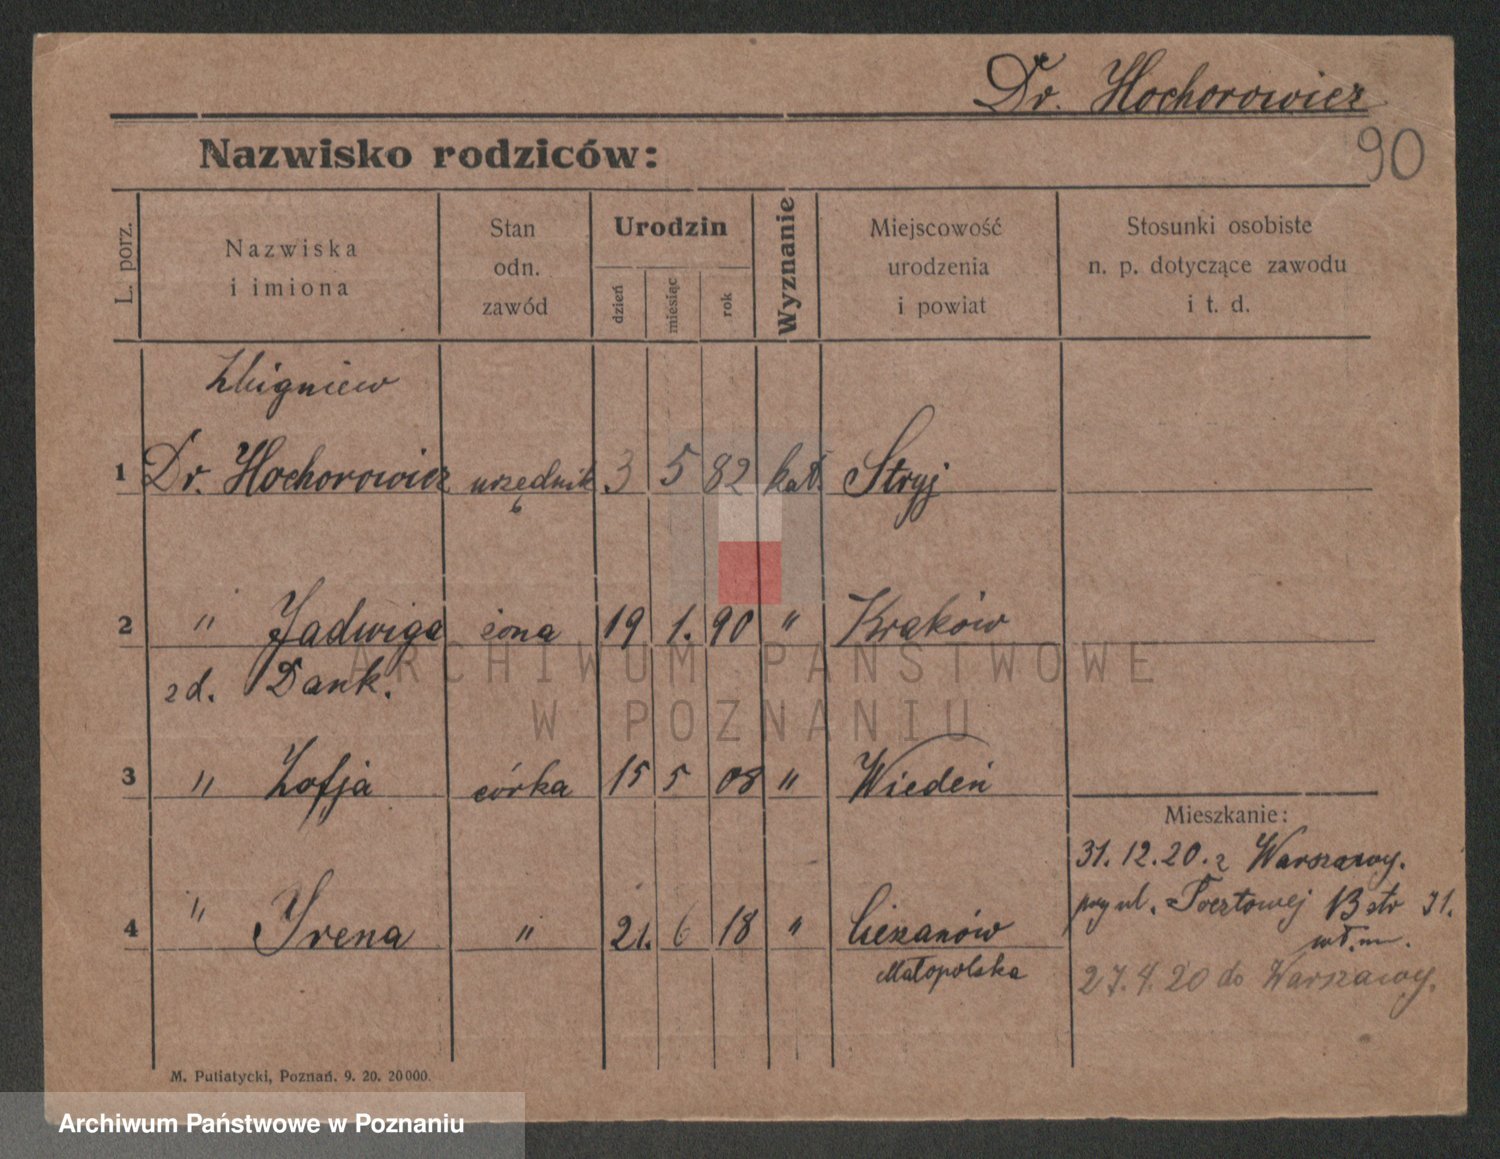 Dr. Hochorowicz
90
Nazwisko rodziców:
L. porz.
Nazwiska
i imiona
Stan
odn.
zawód
Urodzin
dzień
miesiąc
rok
Wyznanie
Miejscowość
urodzenia
i powiat
Stosunki osobiste
n. p. dotyczące zawodu
i t. d.
Zbigniew
1 Dr. Hochorowicz urzędnik 3 5 82 kat. Stryj
2 " Jadwiga żona 19 1. 90 " Kraków
zd. Dank.
3 " Zofja córka 15 5 08 " Wiedeń
4 " Irena " 21. 6 18 " Cieszanów
Małopolska
Mieszkanie:
31.12.20. z Warszawy.
przy ul. Pocztowej 31.
27.4.20 do Warszawy.
M. Putiatycki, Poznań. 9. 20. 20000.
ARCHIWUM PAŃSTWOWE
W POZNANIU
Archiwum Państwowe w Poznaniu